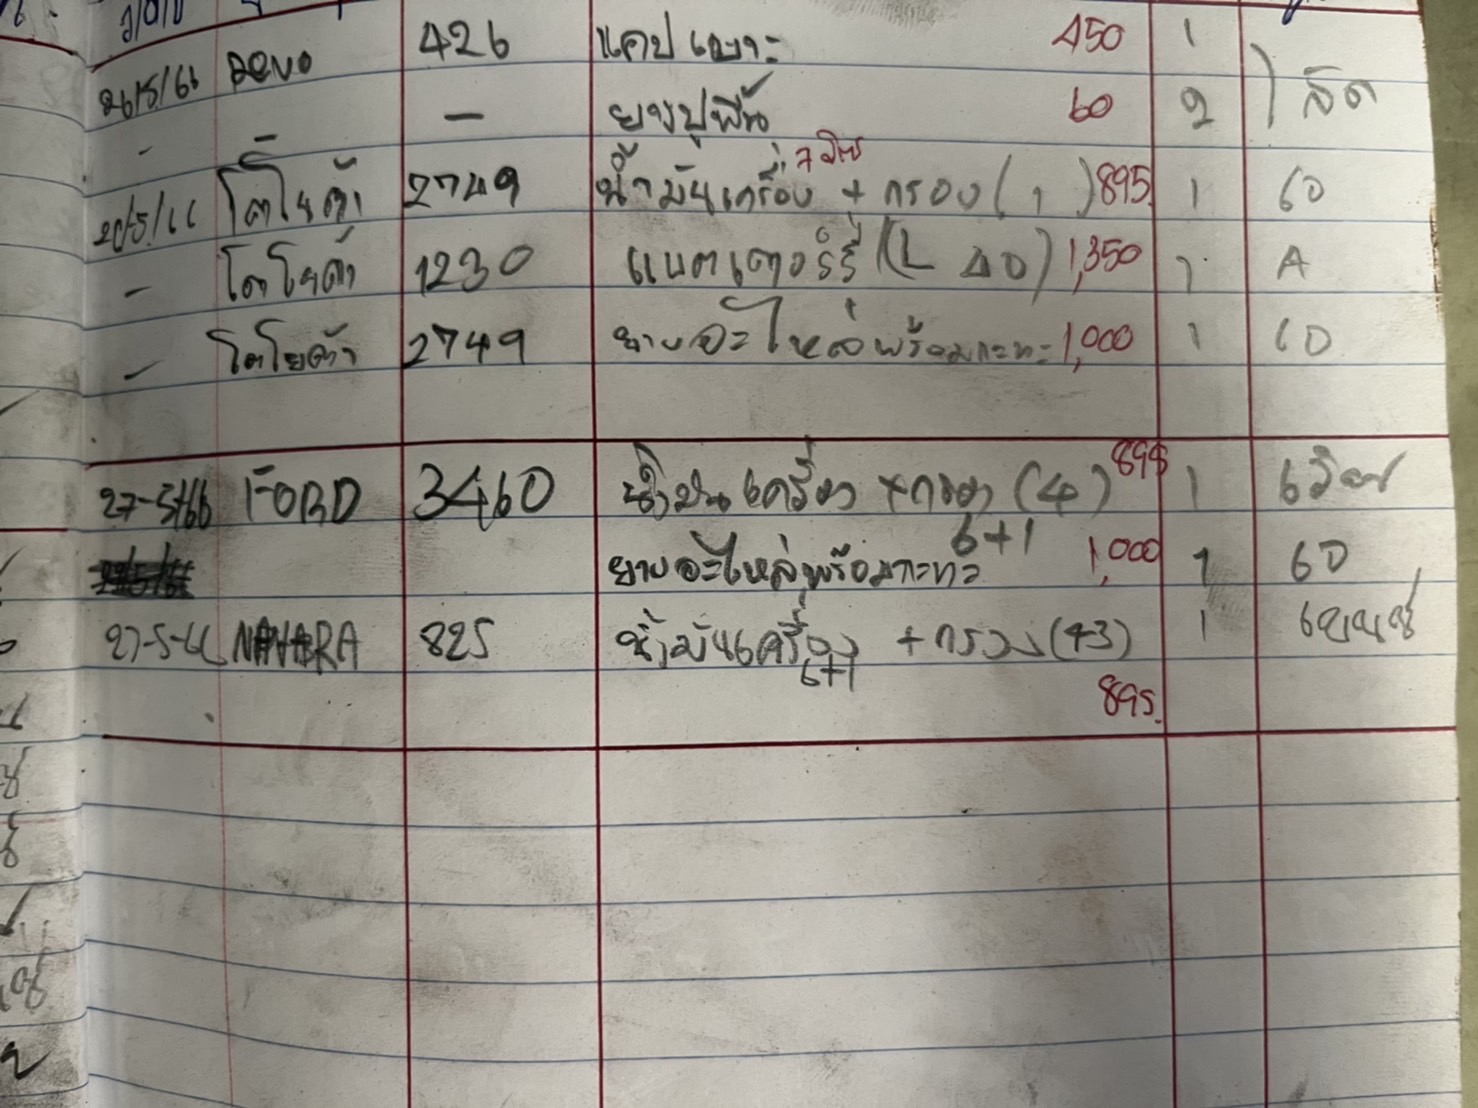 26/5/66 REVO 426 แคปเบาะ 450 1
- — ยางปูพื้น 60 2 ) ลัด
7 ลิตร
20/5/66 โตโยต้า 2749 น้ำมันเครื่อง + กรอง (1) 895. 1 60
- โตโยต้า 1230 แบตเตอร์รี่ (L 40) 1,350 1 A
- โตโยต้า 2749 ยางอะไหล่พร้อมกะทะ 1,000 1 60
27-5-66 FORD 3460 น้ำมันเครื่อง + กรอง (4) 895 1
6+1
ยางอะไหล่พร้อมกะทะ 1,000 1 60
27-5-66 NAVARA 825 น้ำมันเครื่อง + กรอง (43) 1
6+1
895.